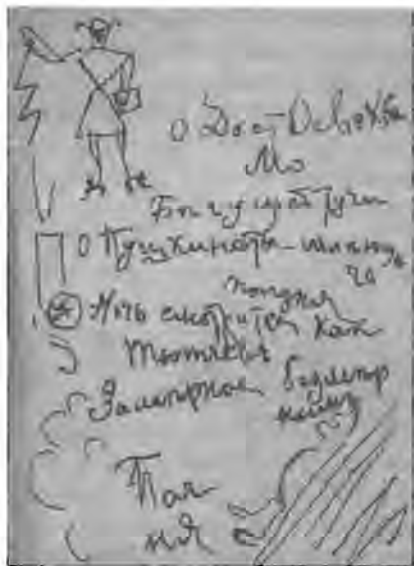 О Достоевский
Мо
Бегущей тучи
О Пушкиноты млеюще
го
полдня
Ночь смотрится как
Тютчев
Замерное безмер
ным
Пол
ня